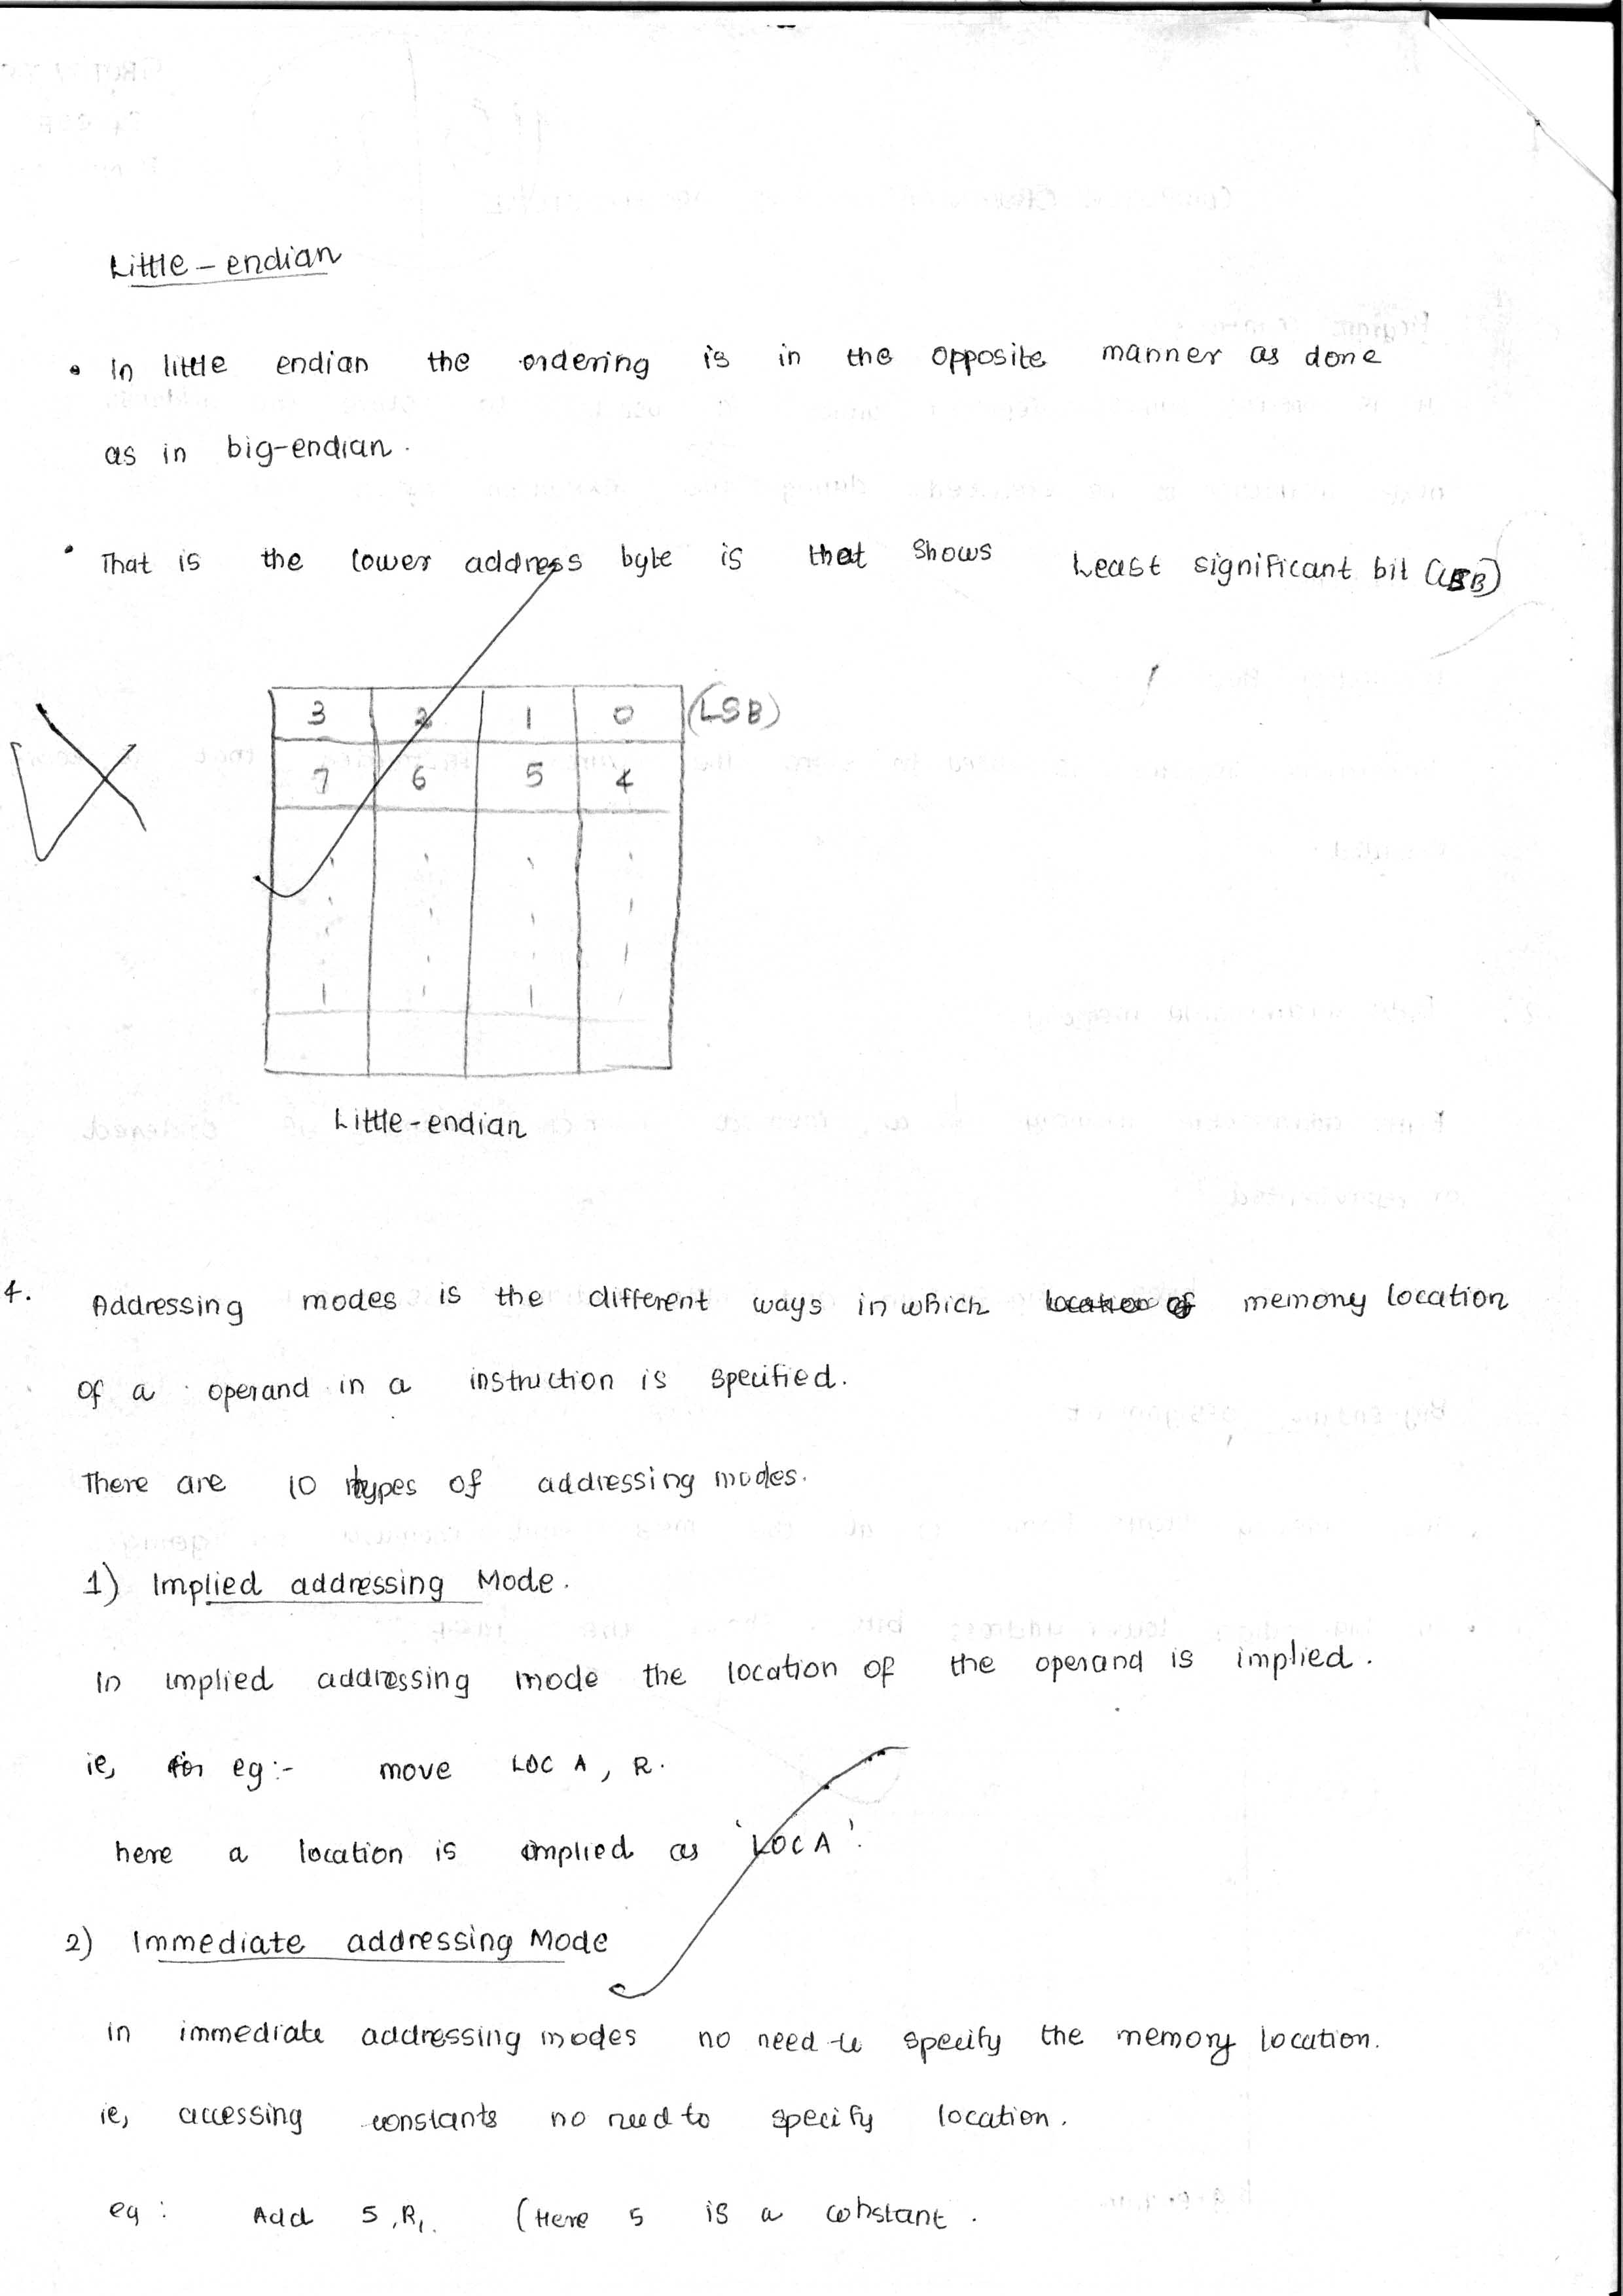 Little - endian
• In little endian the ordering is in the opposite manner as done
as in big-endian.
• That is the lower address byte is that shows Least significant bit (LSB)
3 2 1 0 (LSB)
7 6 5 4
Little-endian
4. Addressing modes is the different ways in which memory location
of a operand in a instruction is specified.
There are 10 types of addressing modes.
1) Implied addressing Mode.
In implied addressing mode the location of the operand is implied.
ie, for eg:- move LOC A, R.
here a location is implied as 'LOC A'.
2) Immediate addressing Mode
in immediate addressing modes no need to specify the memory location.
ie, accessing constants no need to specify location.
eg: Add 5, R1. (Here 5 is a constant.